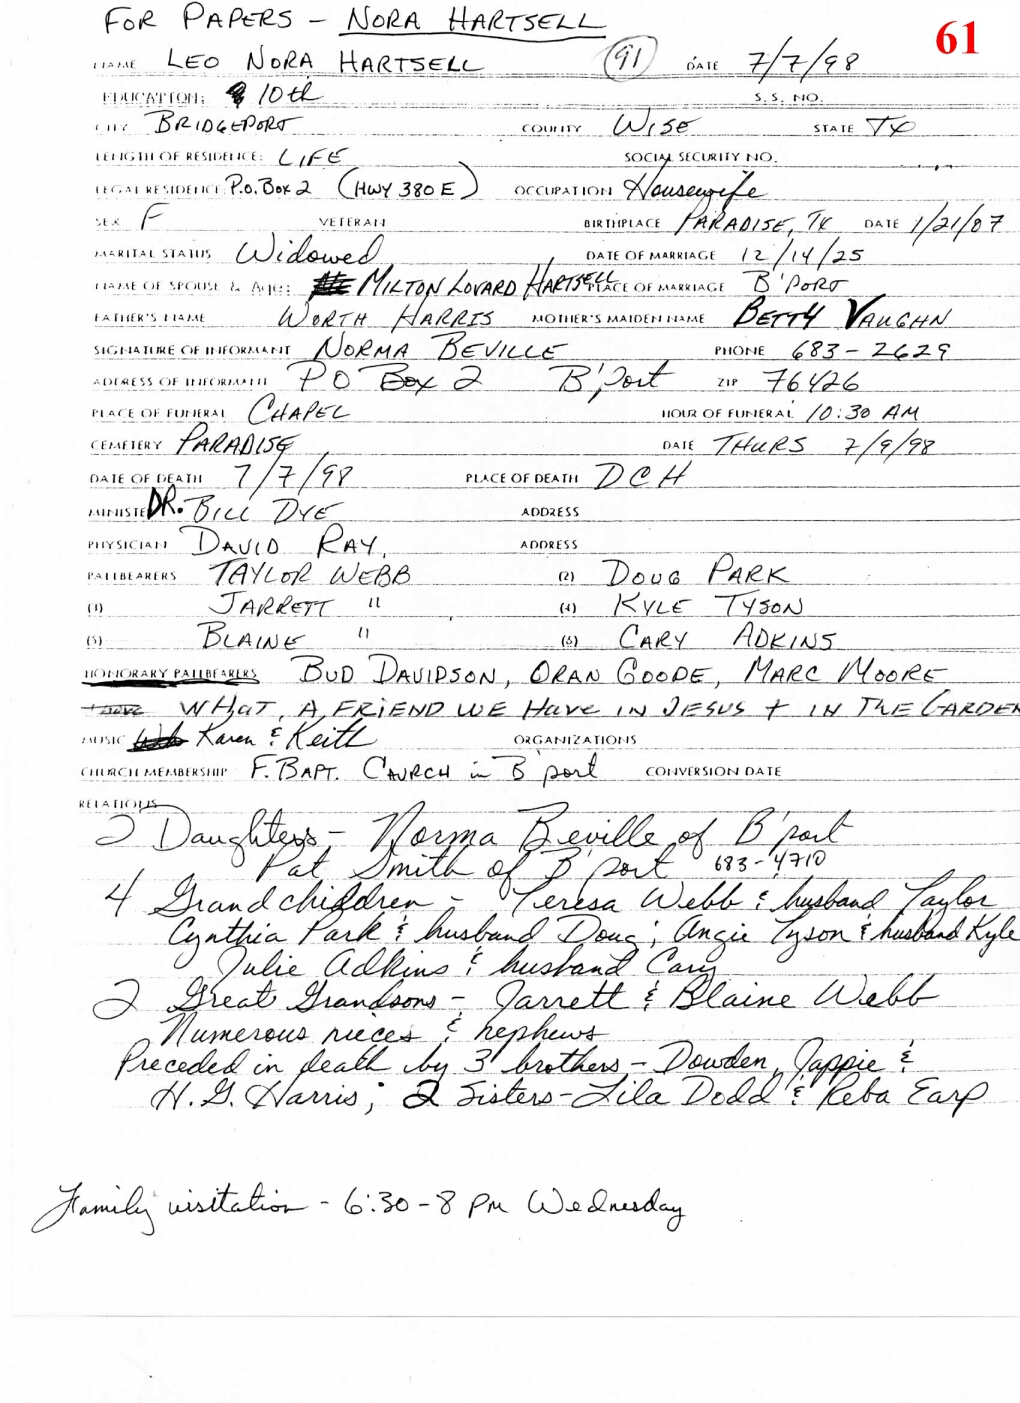 FOR PAPERS - NORA HARTSELL
61
NAME LEO NORA HARTSELL (91) DATE 7/7/98
EDUCATION: 10th S.S. NO.
CITY BRIDGEPORT COUNTY WISE STATE TX
LENGTH OF RESIDENCE: LIFE SOCIAL SECURITY NO.
LEGAL RESIDENCE: P.O. Box 2 (HWY 380 E) OCCUPATION Housewife
SEX F VETERAN BIRTHPLACE PARADISE, TX DATE 1/21/07
MARITAL STATUS Widowed DATE OF MARRIAGE 12/14/25
NAME OF SPOUSE & Age: MILTON LOVARD HARTSELL PLACE OF MARRIAGE B'PORT
FATHER'S NAME WORTH HARRIS MOTHER'S MAIDEN NAME BETTY VAUGHN
SIGNATURE OF INFORMANT NORMA BEVILLE PHONE 683-2629
ADDRESS OF INFORMANT P O Box 2 B'port ZIP 76426
PLACE OF FUNERAL CHAPEL HOUR OF FUNERAL 10:30 AM
CEMETERY PARADISE DATE THURS 7/9/98
DATE OF DEATH 7/7/98 PLACE OF DEATH DCH
MINISTER DR. BILL DYE ADDRESS
PHYSICIAN DAVID RAY, ADDRESS
PALLBEARERS TAYLOR WEBB (2) DOUG PARK
(3) JARRETT " (4) KYLE TYSON
(5) BLAINE " (6) CARY ADKINS
HONORARY PALLBEARERS BUD DAVIDSON, ORAN GOODE, MARC MOORE
WHAT A FRIEND WE HAVE IN JESUS + IN THE GARDEN
MUSIC Karen & Keith ORGANIZATIONS
CHURCH MEMBERSHIP F. BAPT. CHURCH in B'port CONVERSION DATE
RELATIONS
2 Daughters - Norma Beville of B'port
Pat Smith of B'port 683-4710
4 Grandchildren - Teresa Webb & husband Taylor
Cynthia Park & husband Doug; Angie Tyson & husband Kyle
Julie Adkins & husband Cary
2 Great Grandsons - Jarrett & Blaine Webb
Numerous nieces & nephews
Preceded in death by 3 brothers - Dowden, Jappie &
H. G. Harris; 2 Sisters - Lila Dodd & Reba Earp
Family visitation - 6:30-8 pm Wednesday